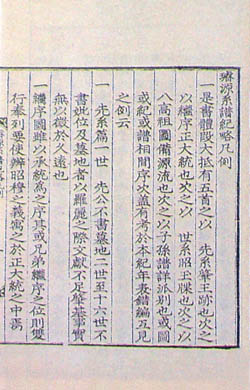 璿源系譜紀略凡例
一是書體段大抵有五首之以 先系肇王跡也次之
以繼序正大統也次之以 世系昭王牒也次之以
八高祖圖備源流也次之以子孫譜詳派別也或圖
或紀或譜相間序次盖有考於本紀年表錯編互見
之例云
一 先系篇一世 先公不書墓地二世至十六世不
書妣位及墓地者以羅麗之際文獻不足肇基事實
無以徵於久遠也
一繼序圖雖以承統爲之序其或兄弟繼序之位則雙
行奉列要使辨昭穆之義寓於正大統之中焉